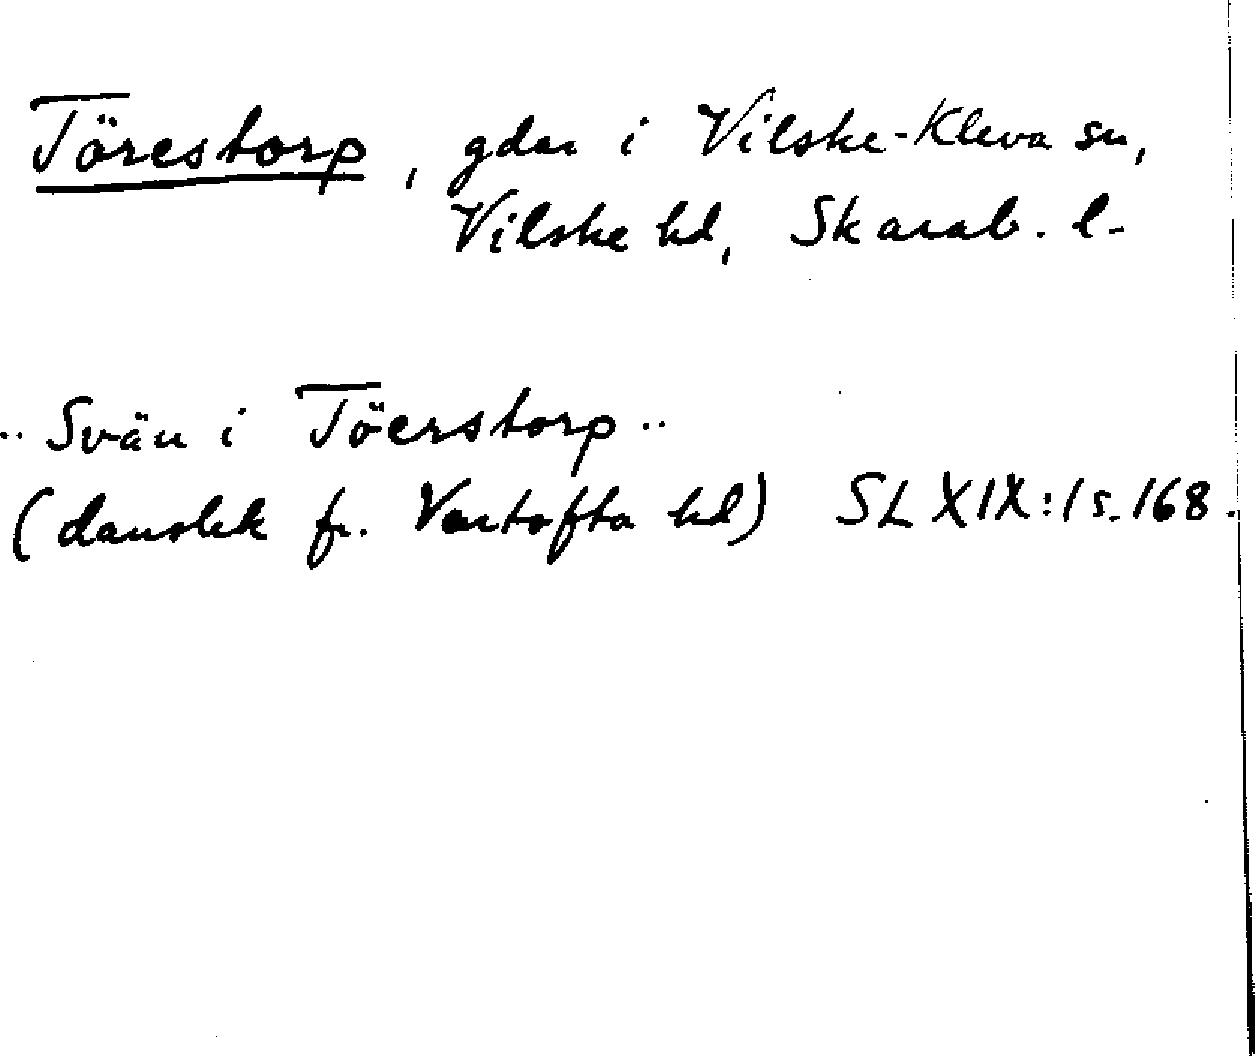 Törestorp, gdar i Vilske-Kleva sn,
Vilske hd, Skarab. l.
.. Svän i Töerstorp ..
(danslek fr. Vartofta hd) SL XIX:1 s. 168.